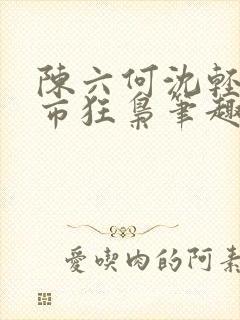 陳六何沈輕
市狂梟筆趣
愛喫肉的阿素